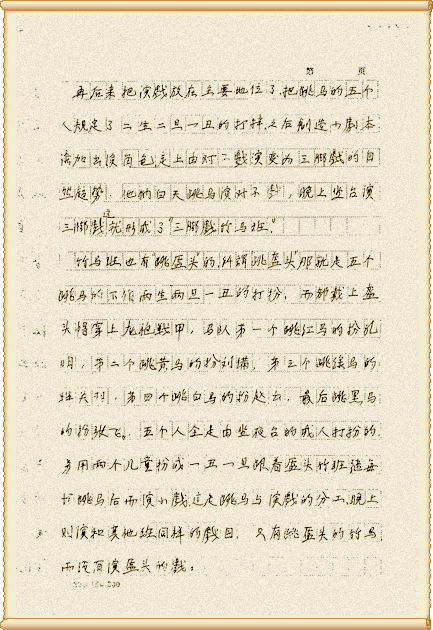 第 页
再后来把演戏放在主要地位了,把跳马的五个
人规定了二生二旦一丑的打扮之后创造小剧本
演员走上由对子戏演变为三脚戏的自
然趋势.他们白天跳马演对子戏,晚上坐台演
三脚戏这就形成了"三脚戏竹马班."
竹马班也有"跳盔头"的.所谓"跳盔头"那就是五个
跳马的不作两生两旦一丑的打扮.而都戴上盔
头帽穿上龙袍战甲,马队第一个跳红马的扮孔
明,第二个跳黄马的扮刘备,第三个跳绿马的
扮关羽.第四个跳白马的扮赵云.最后跳黑马
的扮张飞.五个人全是由坐夜台的戏人打扮的.
另用两个儿童扮成一丑一旦跟着盔头竹班
跳马后而演小戏.这是跳马与演戏的分工,晚上
则演和其他班同样的戏目.只有跳盔头的竹马
而没有演盔头的戏.